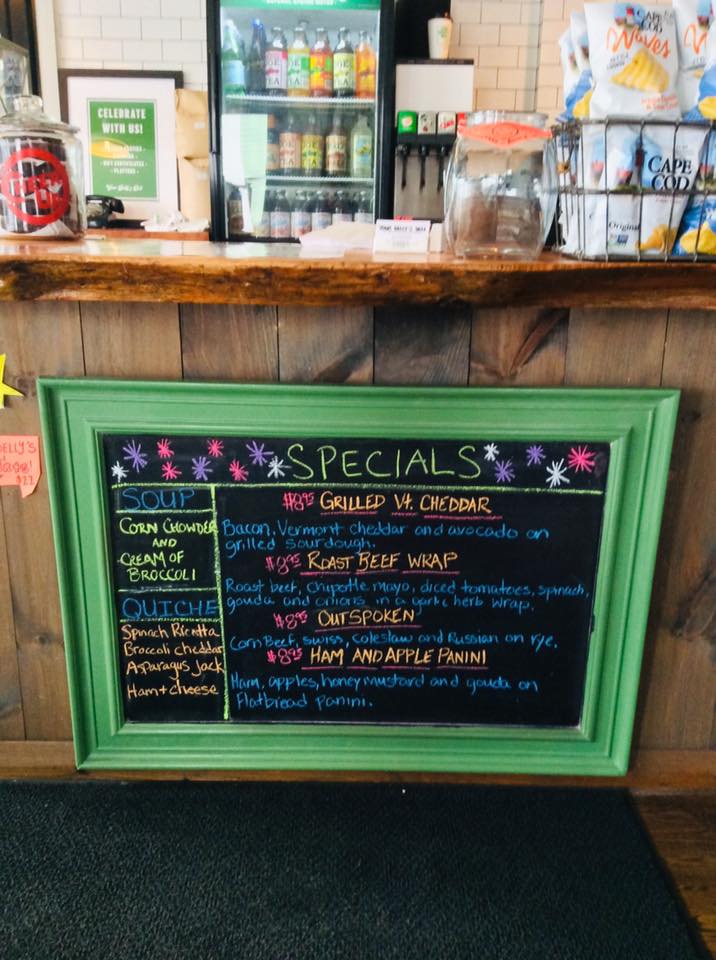 CELEBRATE
WITH US!
TEA
CAPE
COD
Waves
CAPE
COD
Original
SPECIALS
SOUP
CORN CHOWDER
AND
CREAM OF
BROCCOLI
QUICHE
Spinach Ricotta
Broccoli cheddar
Asparagus Jack
Ham + cheese
$8.95 GRILLED Vt. CHEDDAR
Bacon, Vermont cheddar and avocado on
grilled sourdough.
$8.95 ROAST BEEF WRAP
Roast beef, chipotle mayo, diced tomatoes, spinach,
gouda and onions in a garlic herb wrap.
$8.95 OUTSPOKEN
Corn Beef, swiss, coleslaw and Russian on rye.
$8.95 HAM AND APPLE PANINI
Ham, apples, honey mustard and gouda on
Flatbread panini.
$22